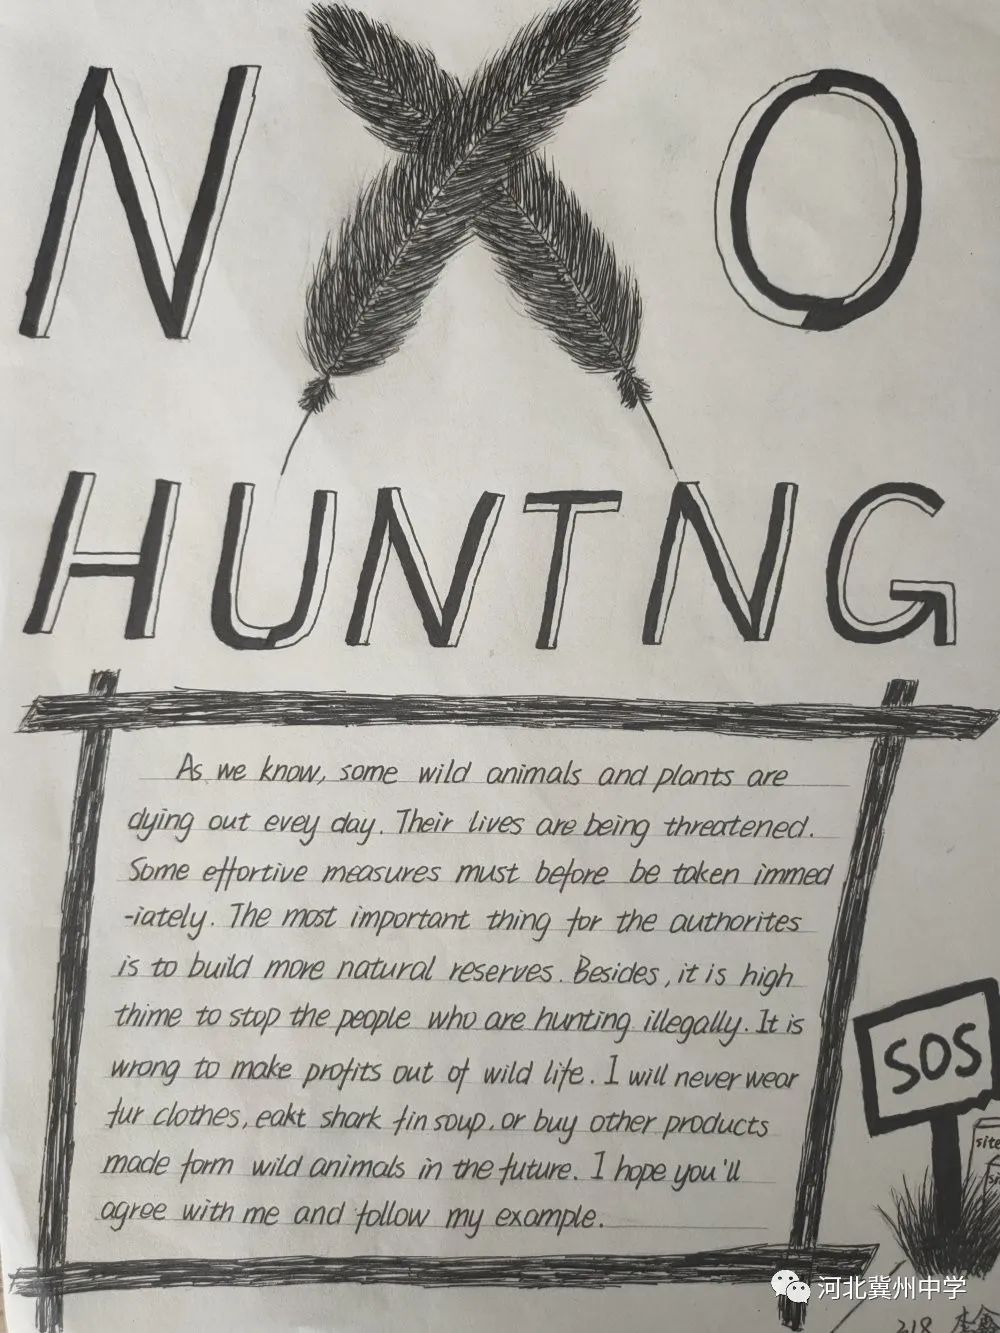 NO
HUNTNG
As we know, some wild animals and plants are
dying out evey day. Their lives are being threatened.
Some effortive measures must before be taken immed
-iately. The most important thing for the authorites
is to build more natural reserves. Besides, it is high
thime to stop the people who are hunting illegally. It is
wrong to make profits out of wild life. I will never wear
fur clothes, eakt shark fin soup, or buy other products
made form wild animals in the future. I hope you'll
agree with me and follow my example.
SOS
site
河北冀州中学
218